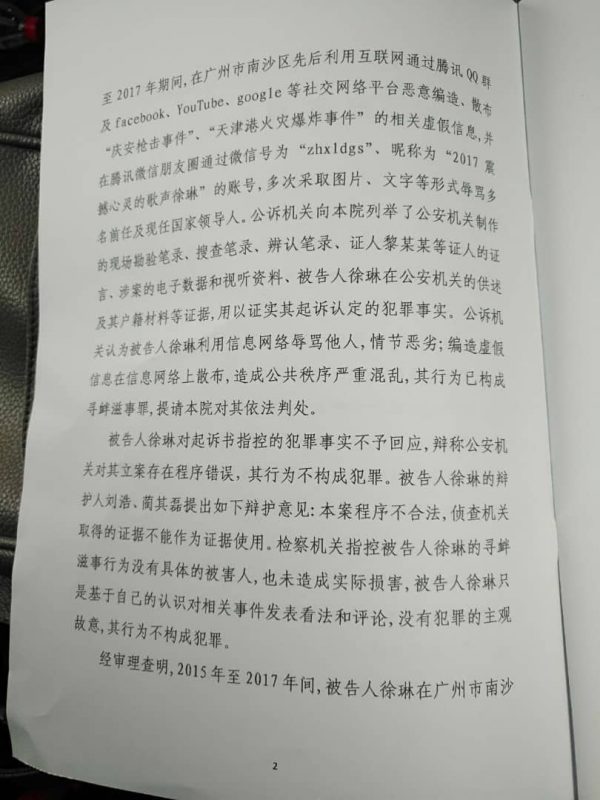 至 2017 年期间,在广州市南沙区先后利用互联网通过腾讯 QQ 群
及 facebook、YouTube、google 等社交网络平台恶意编造、散布
“庆安枪击事件”、“天津港火灾爆炸事件”的相关虚假信息,并
在腾讯微信朋友圈通过微信号为“zhxldgs”、昵称为“2017 震
撼心灵的歌声徐琳”的账号,多次采取图片、文字等形式辱骂多
名前任及现任国家领导人。公诉机关向本院列举了公安机关制作
的现场勘验笔录、搜查笔录、辨认笔录、证人黎某某等证人的证
言、涉案的电子数据和视听资料、被告人徐琳在公安机关的供述
及其户籍材料等证据,用以证实其起诉认定的犯罪事实。公诉机
关认为被告人徐琳利用信息网络辱骂他人,情节恶劣;编造虚假
信息在信息网络上散布,造成公共秩序严重混乱,其行为已构成
寻衅滋事罪,提请本院对其依法判处。
被告人徐琳对起诉书指控的犯罪事实不予回应,辩称公安机
关对其立案存在程序错误,其行为不构成犯罪。被告人徐琳的辩
护人刘浩、蔺其磊提出如下辩护意见:本案程序不合法,侦查机关
取得的证据不能作为证据使用。检察机关指控被告人徐琳的寻衅
滋事行为没有具体的被害人,也未造成实际损害,被告人徐琳只
是基于自己的认识对相关事件发表看法和评论,没有犯罪的主观
故意,其行为不构成犯罪。
经审理查明,2015 年至 2017 年间,被告人徐琳在广州市南沙
2